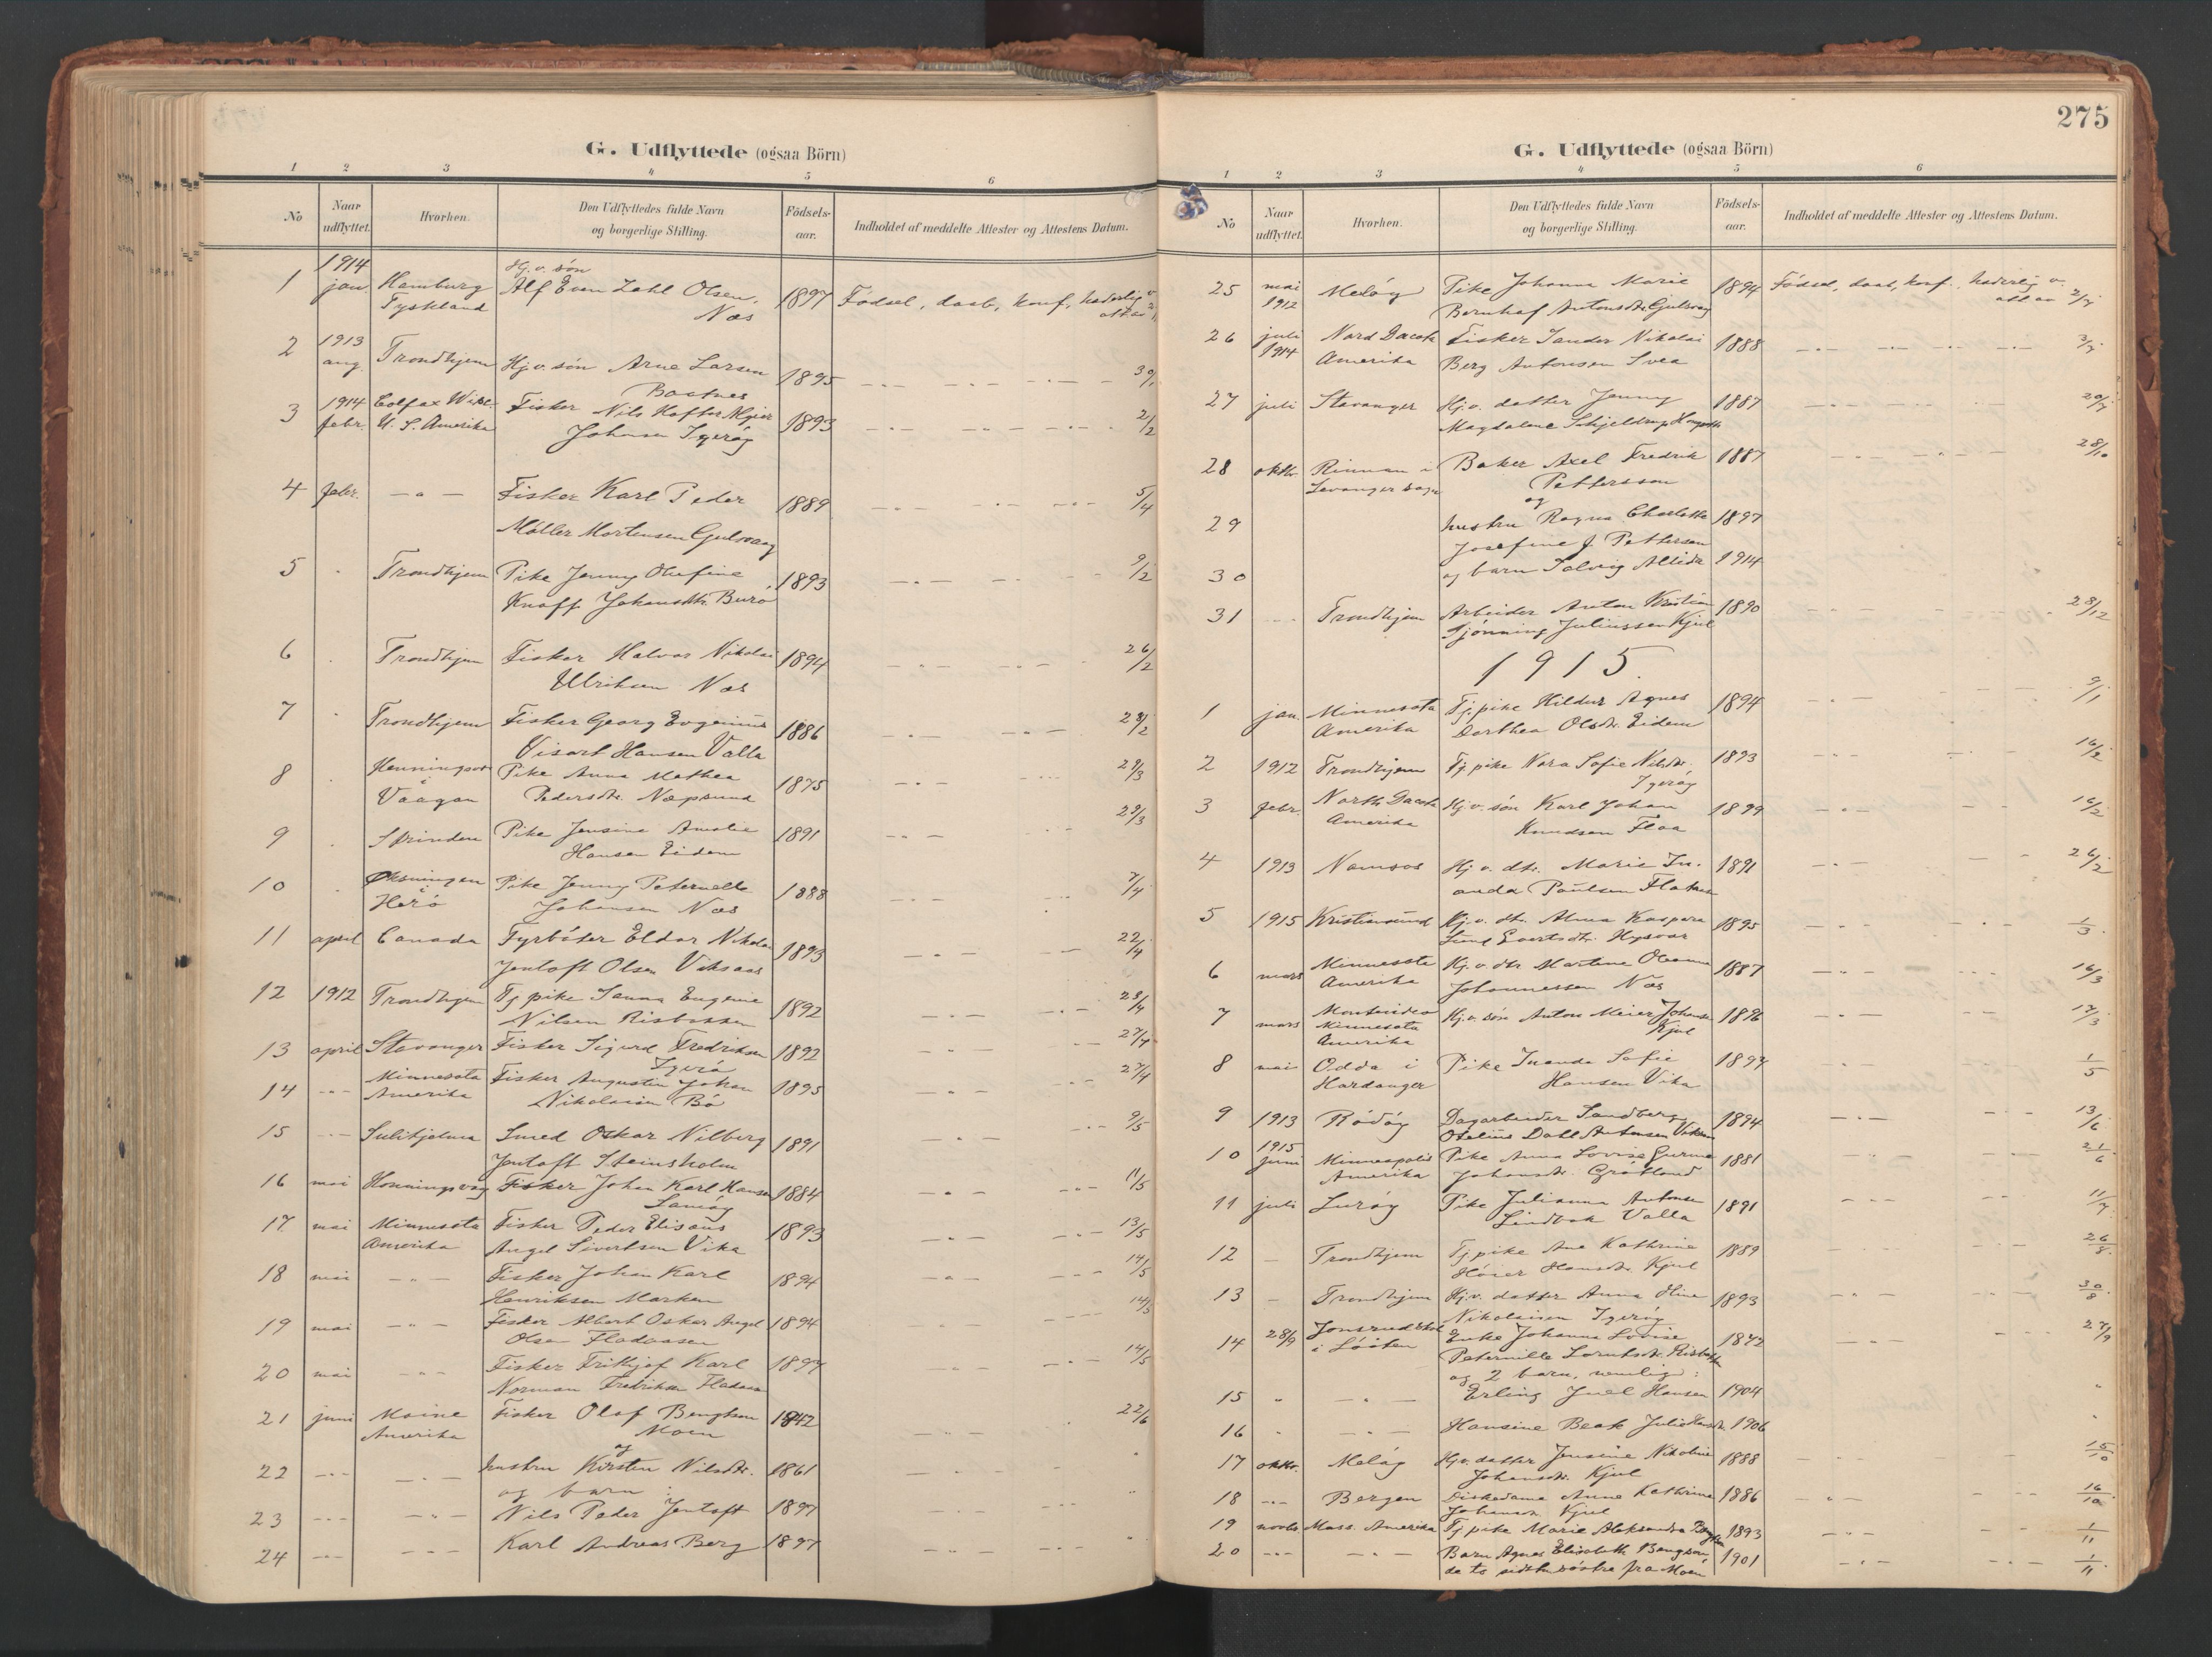 G. Udflyttede (ogsaa Börn)
1 2 3 4 5 6
No
Naar udflyttet.
Hvorhen.
Den Udflyttedes fulde Navn og borgerlige Stilling.
Födsels-aar.
Indholdet af meddelte Attester og Attestens Datum.
1 1914 jan. Hamburg Tyskland
Hj.v. søn Alf Even Zahl Olsen, Næs 1897
Fødsel, daab, konf., hæderlig v.
2 1913 aug. Trondhjem
Hj.v. søn Arne Larsen 1895 30/1
3 1914 febr. Colfax Wisc. U. S. Amerika
Fisker Nils Johnsen Igerøy 1893 2/2
4 febr. -"-
Fisker Karl Peder Møller Mortensen Gjulsvaag 1889 5/4
5 Trondhjem
Pike Jenny Olufine Knoff Johansdtr. Burø 1893 9/2
6 Trondhjem
Fisker Halvor Nikolai Ulriksen Næs 1894 26/2
7 Trondhjem
Fisker Georg Evgenius Visart Hansen Valla 1886
8 Henningsvær i Vaagan
Pike Anna Mathea Pedersdtr. Næpsund 1875
9
Pike Jensine Amalie Hansen Eidem 1891
10 Øksningen i Herø
Pike Jenny Peternelle Johansen Næs 1888 7/4
11 april Canada
Fyrbøter Eldor Nikolai Jentoft Olsen Viksaas 1893 22/4
12 1912 Trondhjem
Tj. pike Sanna Eugenie Nilsen Risbossen 1892
13 april Stavanger
Fisker Sigurd Fredriksen Igerø 1892 27/4
14 -"- Minnesota Amerika
Fisker Augustin Johan Nikolaisen Bø 1895 27/4
15 -"- Sulitjelma
Smed Oskar Nilberg Jentoft Steinsholm 1891 9/5
16 mai Honningsvåg
Fisker Johan Karl Hansen Samøy 1884 11/5
17 mai Minnesota Amerika
Fisker Peder Elisæus Angel Sivertsen Vika 1893 13/5
18 mai -"-
Fisker Johan Karl Henriksen Marken 1894 14/5
19 mai -"-
Fisker Albert Oskar Angel Olsen Fladaasen 1894 14/5
20 mai -"-
Fisker Frithjof Karl Norman Fredriksen Fladaas 1897 14/5
21 juni Maine Amerika
Fisker Olaf Bengtson Moen 1842 22/6
22 -"- -"-
og hustru Kirsten Nilsdtr. 1861
og barn :
23 -"- -"-
Nils Peder Jentoft 1897
24 -"- -"-
Karl Andreas Berg 1897
275
G. Udflyttede (ogsaa Börn)
1 2 3 4 5 6
No
Naar udflyttet.
Hvorhen.
Den Udflyttedes fulde Navn og borgerlige Stilling.
Födsels-aar.
Indholdet af meddelte Attester og Attestens Datum.
25 mai 1912 Meløy
Pike Johanna Marie Bernhof Antonsdtr. Gjulsvaag 1894
Fødsel, daab, konf., hæderlig v. 2/7
26 juli 1914 Nord Dacota Amerika
Fisker Sander Nikolai Berg Antonsen Svea 1888 3/7
27 juli Stavanger
Hj.v. datter Jenny Magdalene Schjeldrup 1887 20/7
28 oktbr. Rinnan i Levanger sogn
Baker Axel Fredrik Pettersson 1887 28/10
29
og hustru Ragna Charlotte Josefine J. Petterson 1897
30
og barn Solveig 1914
31 Trondhjem
Arbeider Anton Kristian Tjønning Juliussen Kjul 1890 28/12
1915.
1 jan. Minnesota Amerika
Tj. pike Hildur Agnes Dorthea Olsdtr. Eidem 1894 9/1
2 1912 Trondhjem
Tj. pike Nora Sofie Nilsdtr. Igerøy 1893 16/2
3 febr. North Dacota Amerika
Hj.v. søn Karl Johan Knudsen Floa 1899 16/2
4 1913 Namsos
Hj.v. dtr. Marie Inanda Paulsen 1891 26/2
5 1915 Kristiansund
Hj.v. dtr. Alma Kaspara Evertsdtr. Hysvær 1895 1/3
6 mars Minnesota Amerika
Hj.v. dtr. Martine Johannessen Næs 1887 16/3
7 mars Montevideo Minnesota Amerika
Hj.v. søn Anton Meier Johansen Kjul 1896 17/3
8 mai Odda i Hardanger
Pike Inanda Sofie Hansen Vika 1894 1/5
9 1913 Rødøy
Dagarbeider Sandberg Otelius Dahl Antonsen 1894 13/6
10 1915 juni Minneapolis Amerika
Pike Anna Lovise Gurine Johansdtr. Grøtland 1881 21/6
11 juli Lurøy
Pike Julianna Antonsen Lindbak Valla 1891 11/7
12 - Trondhjem
Tj. pike Ane Kathrine Høier Hansdtr. Kjul 1889 26/8
13 - Trondhjem
Hj.v. datter Anna Nikolaisen Igerøy 1893 30/8
14 28/9 i Løiten
Enke Johanna Lovise Peternille 1872 27/9
og 2 barn, nemlig :
15 " -"-
Erling Juel Hansen 1904 "
16 " -"-
Hansine Beate Julie 1906 "
17 oktbr. Meløy
Hj.v. datter Jensine Nikoline Johansdtr. Kjul 1888 15/10
18 -"- Bergen
Diskedame Anne Kathrine Johansdtr. Kjul 1886 16/10
19 novbr. Mass. Amerika
Tj. pike Marie Aleksandra 1893 1/11
20 -"- -"-
Barn Agnes Elisabeth Bengtson, de to sidste søstre fra Moen 1901 1/11